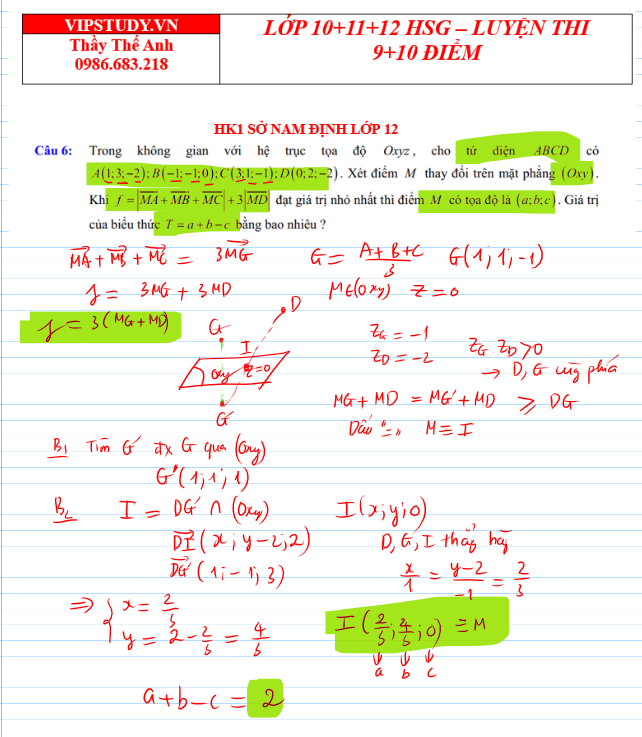 VIPSTUDY.VN
Thầy Thế Anh
0986.683.218
LỚP 10+11+12 HSG – LUYỆN THI
9+10 ĐIỂM
HK1 SỞ NAM ĐỊNH LỚP 12
Câu 6: Trong không gian với hệ trục tọa độ Oxyz, cho tứ diện ABCD có
A(1;3;−2); B(−1;−1;0); C(3;1;−1); D(0;2;−2). Xét điểm M thay đổi trên mặt phẳng (Oxy).
Khi f = |MA + MB + MC| + 3|MD| đạt giá trị nhỏ nhất thì điểm M có tọa độ là (a;b;c). Giá trị
của biểu thức T = a + b − c bằng bao nhiêu ?
MA + MB + MC = 3MG G = (A+B+C)/3 G(1; 1; −1)
f = 3MG + 3MD M∈(Oxy) z = 0
f = 3(MG + MD)
D
G
I
Oxy z=0
G'
z_G = −1
z_D = −2
z_G z_D > 0
→ D, G cùng phía
MG + MD = MG' + MD ≥ DG
Dấu "=" M ≡ I
B1 Tìm G' đx G qua (Oxy)
G'(1; 1; 1)
B2 I = DG' ∩ (Oxy) I(x; y; 0)
DI(x; y−2; 2) D, G, I thẳng hàng
DG'(1; −1; 3) x/1 = (y−2)/−1 = 2/3
⇒ { x = 2/3
y = 2 − 2/3 = 4/3
I(2/3; 4/3; 0) ≡ M
a b c
a + b − c = 2